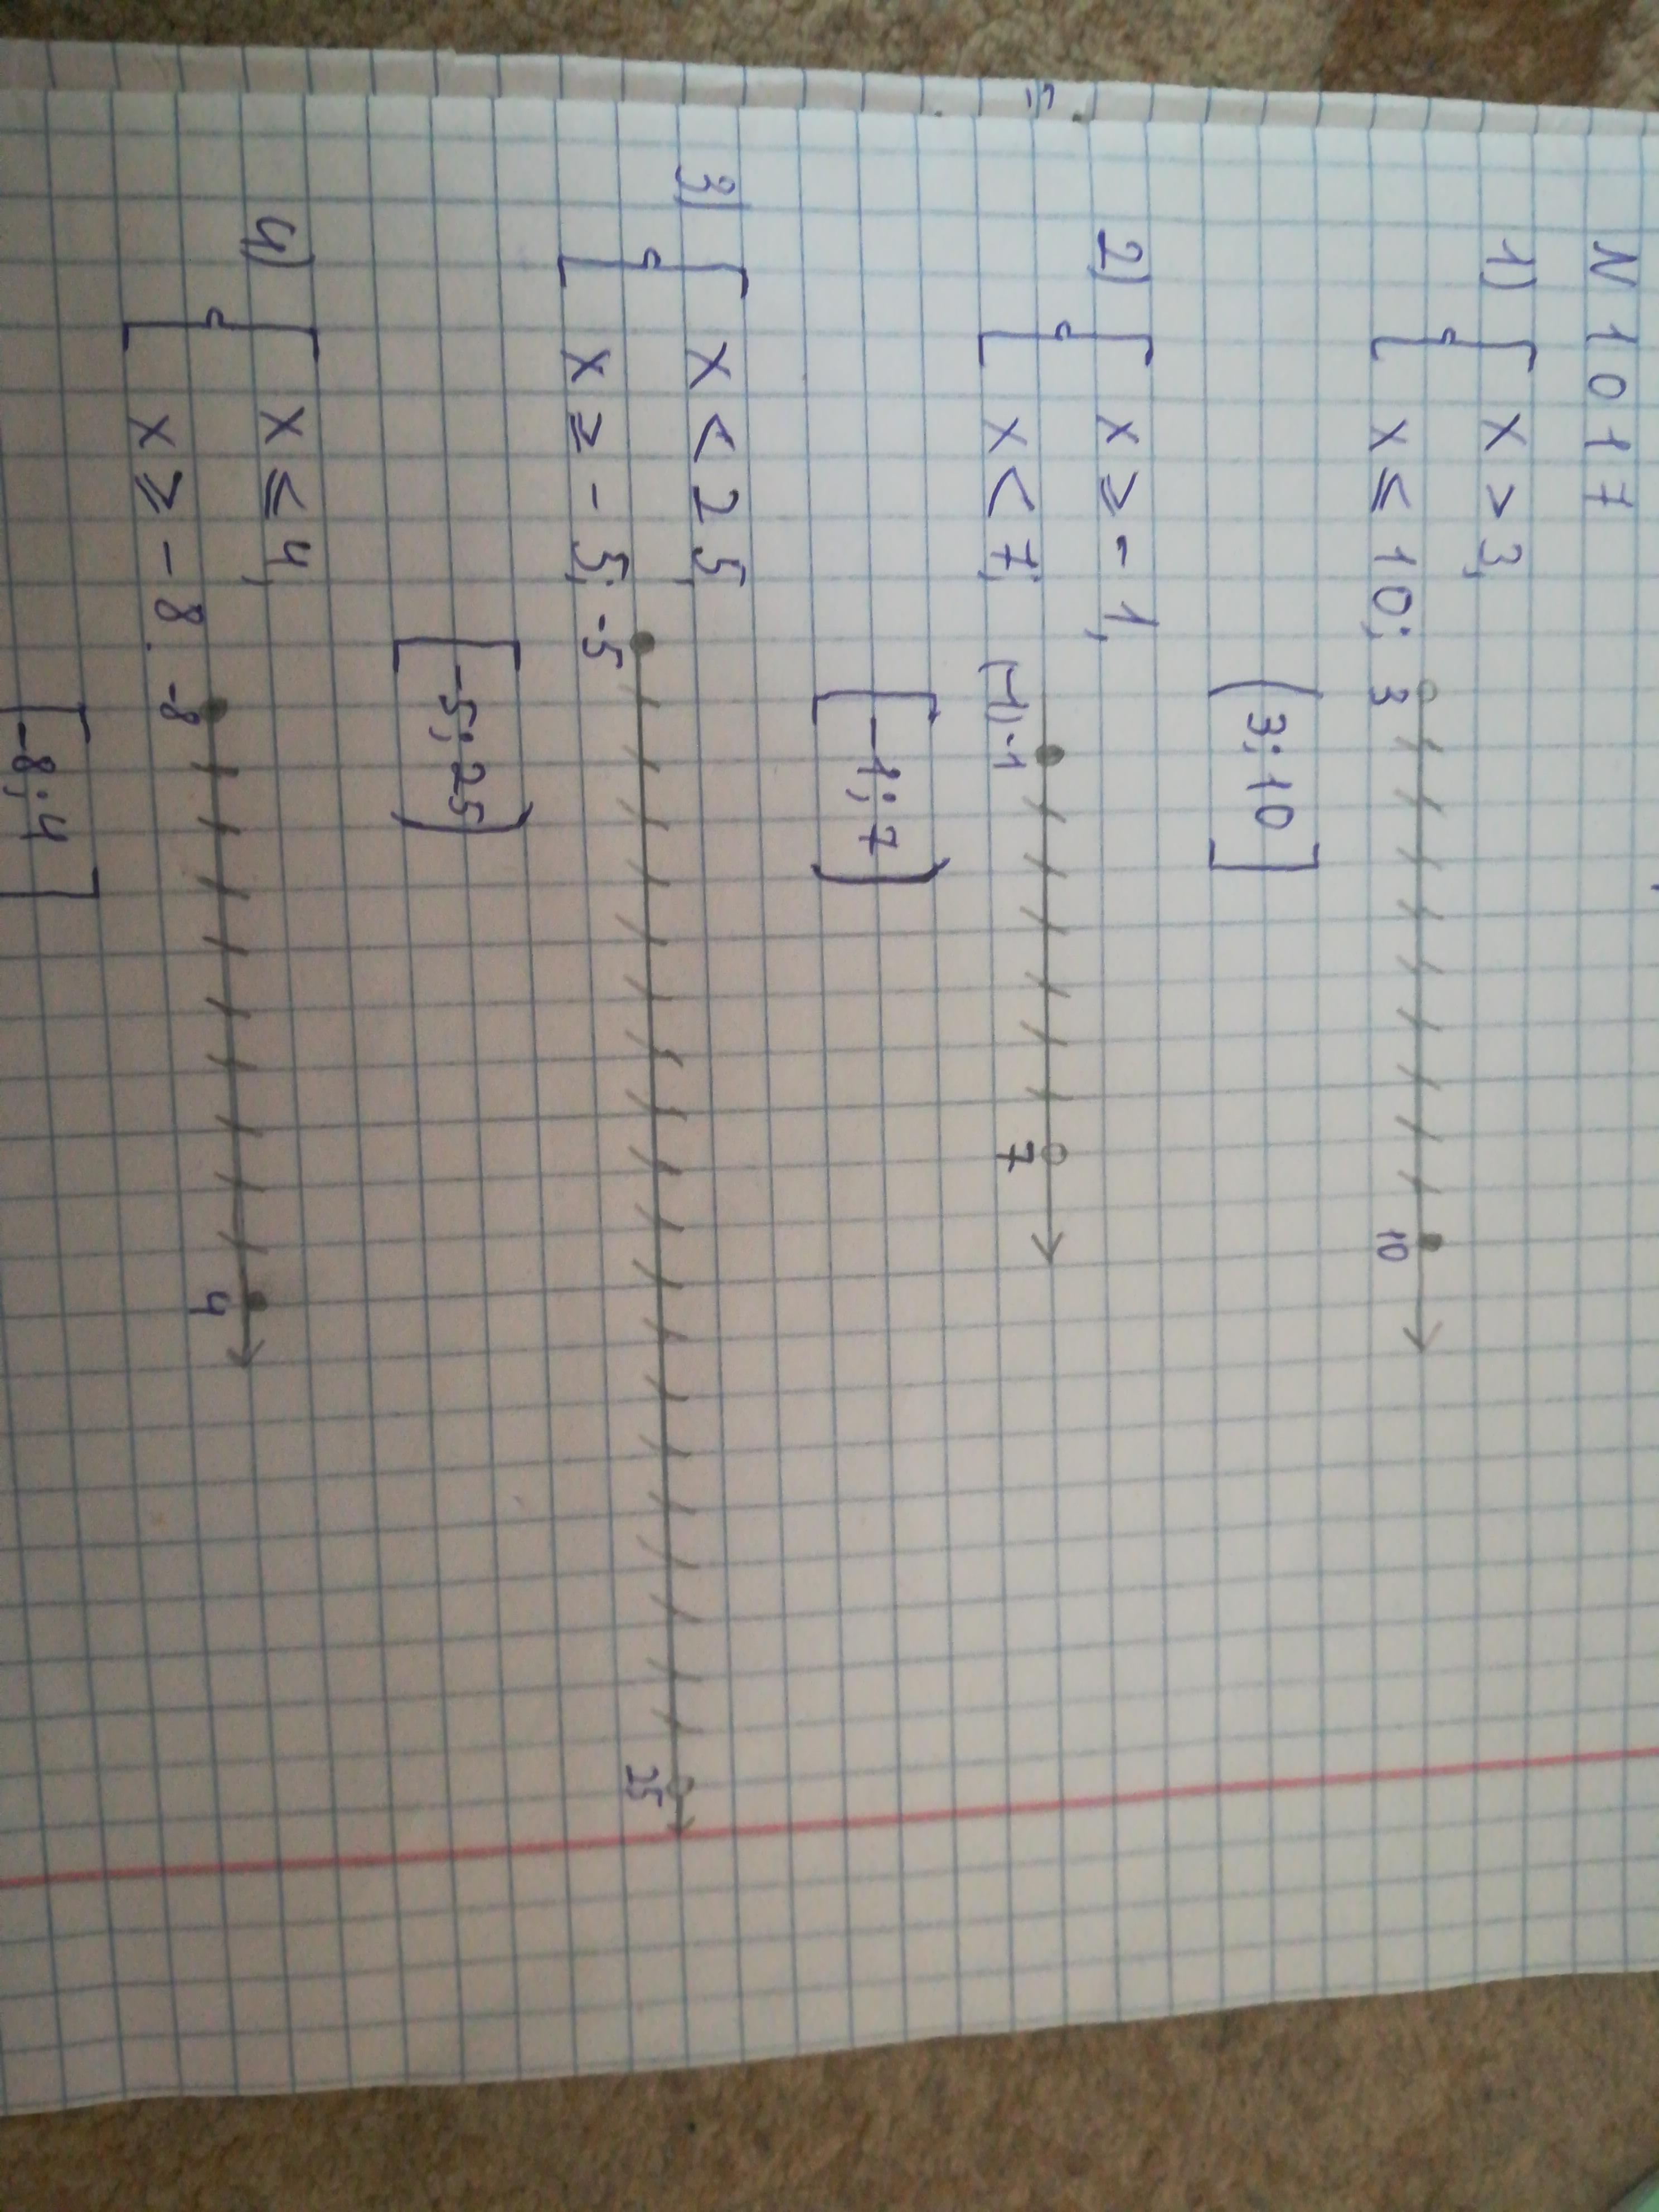 N 1017
1) { x > 3,
x ≤ 10;
3 10
(3; 10]
2) { x ≥ -1,
x < 7;
(-1) -1 7
[-1; 7)
3) { x < 25,
x ≥ -5;
-5 25
[-5; 25)
4) { x ≤ 4,
x ≥ -8.
-8 4
[-8; 4]